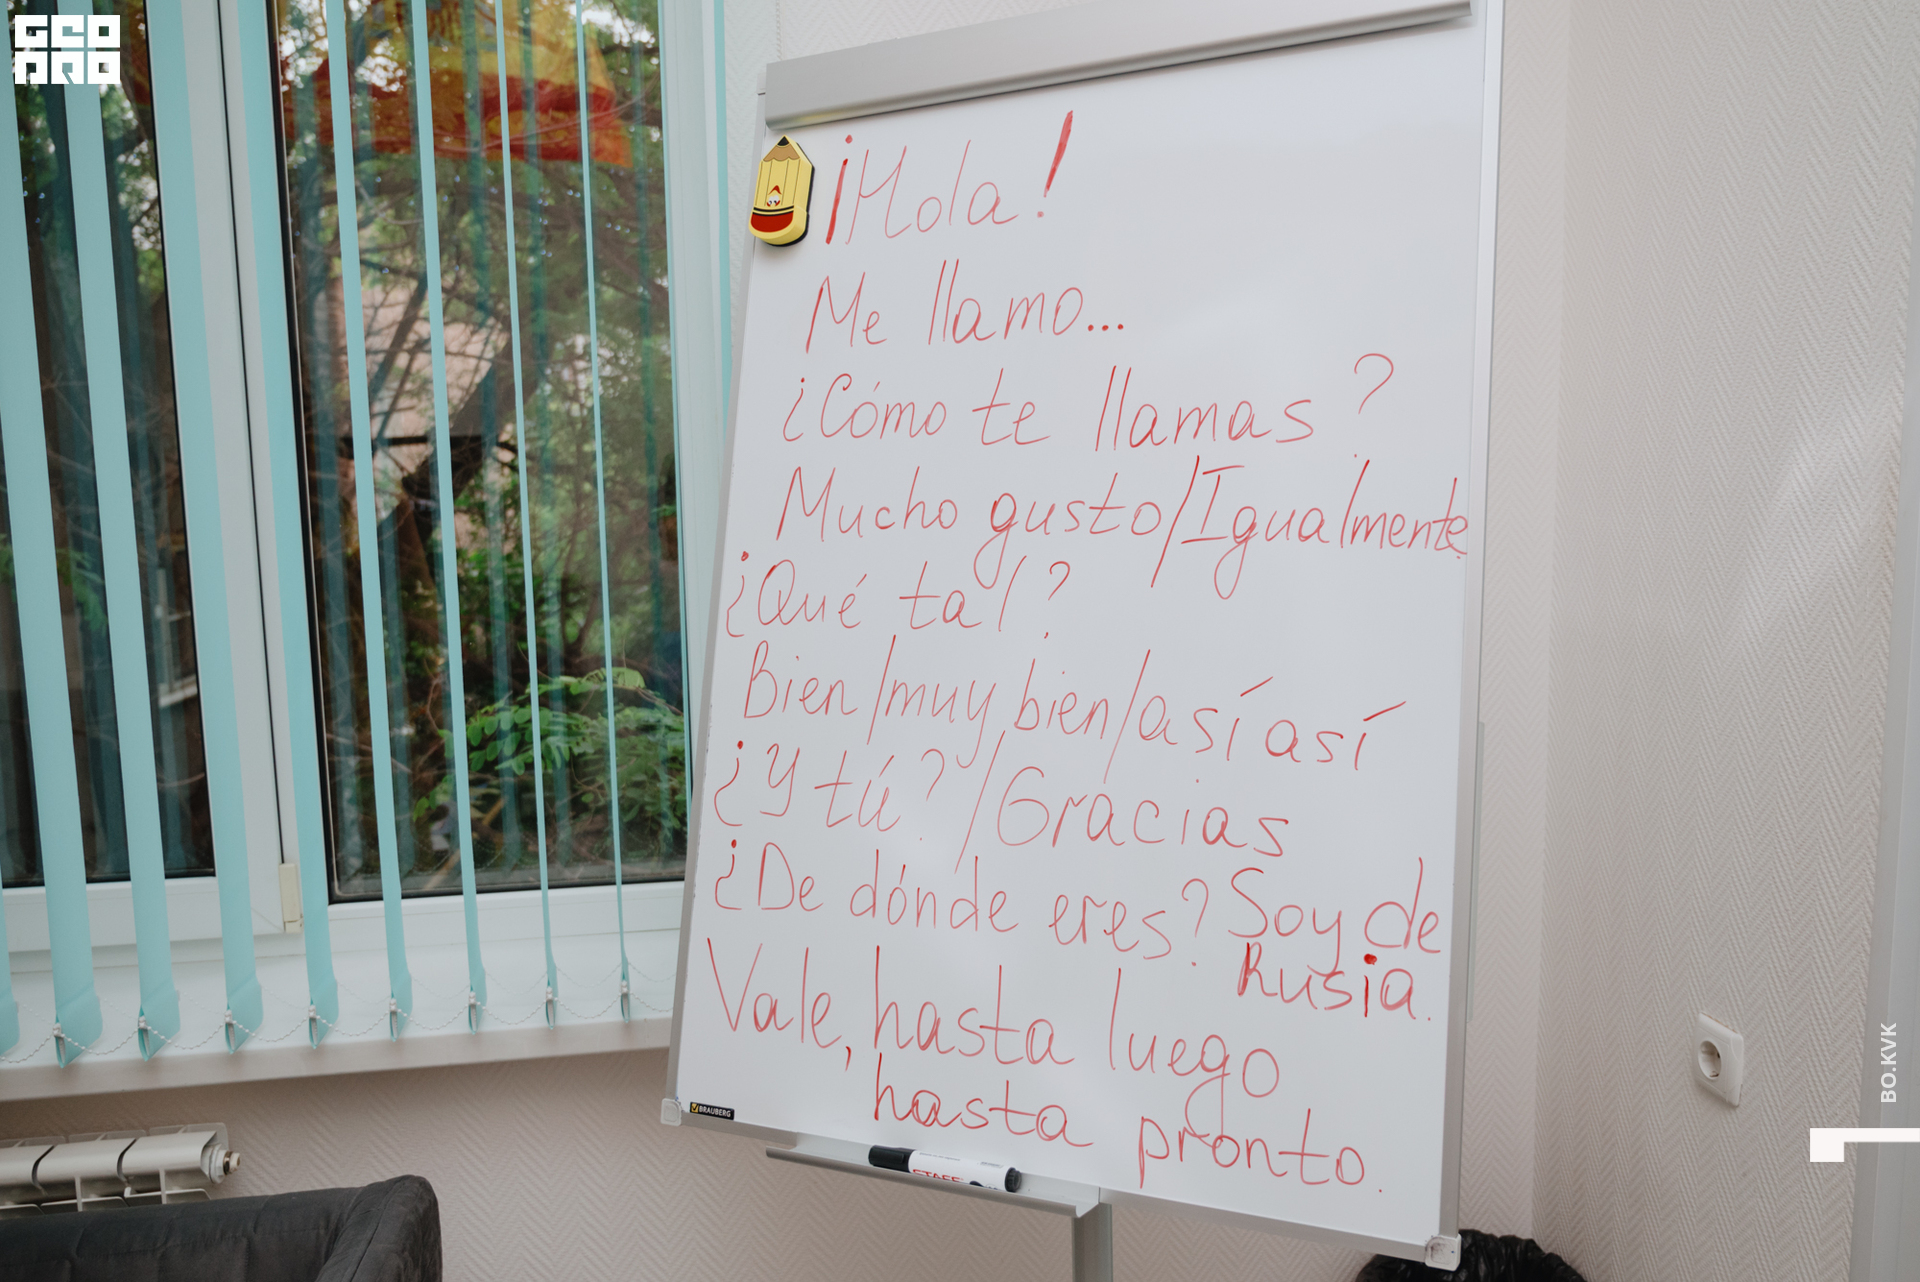 GEO
PRO
¡Hola!
Me llamo...
¿Cómo te llamas?
Mucho gusto/Igualmente
¿Qué tal?
Bien/muy bien/así así
¿Y tú?/Gracias
¿De dónde eres? Soy de
Rusia.
Vale, hasta luego
hasta pronto.
BRAUBERG
BO.KVK